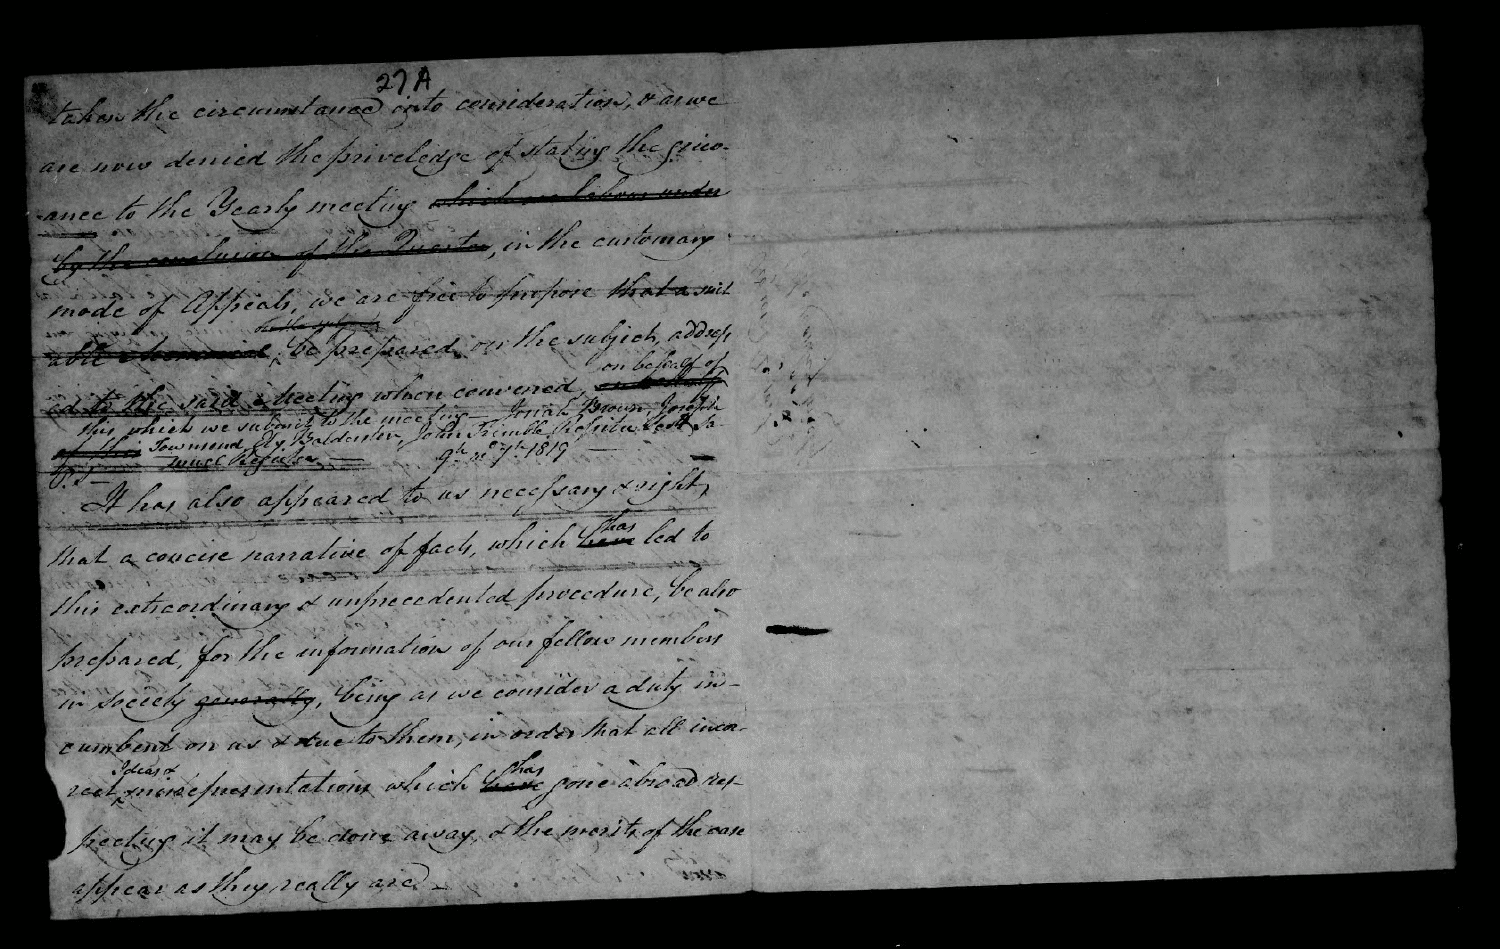 27A
taken the circumstance into consideration, & as we
are now denied the priveledge of stating the griev-
ance to the Yearly meeting which we labour under
by the conclusion of the Quarter, in the customary
mode of Appeals, we are free to propose that a suit
able memorial, be prepared on the subject, address
on behalf of
ed to the said meeting when convened,
this which we submit to the meeting – Jonah Brown, Joseph
Townsend, Ely Balderston, John Trimble,
9th mo 7th 1819
P.S –
It has also appeared to us necessary & right,
has
that a concise narrative of facts, which have led to
this extraordinary & unprecedented procedure, be also
prepared, for the information of our fellow members
in society generally, being as we consider a duty in-
cumbent on us & due to them, in order that all incor-
Ideas & has
rect misrepresentations which have gone abroad res-
pecting it may be done away, & the merits of the case
appear as they really are –